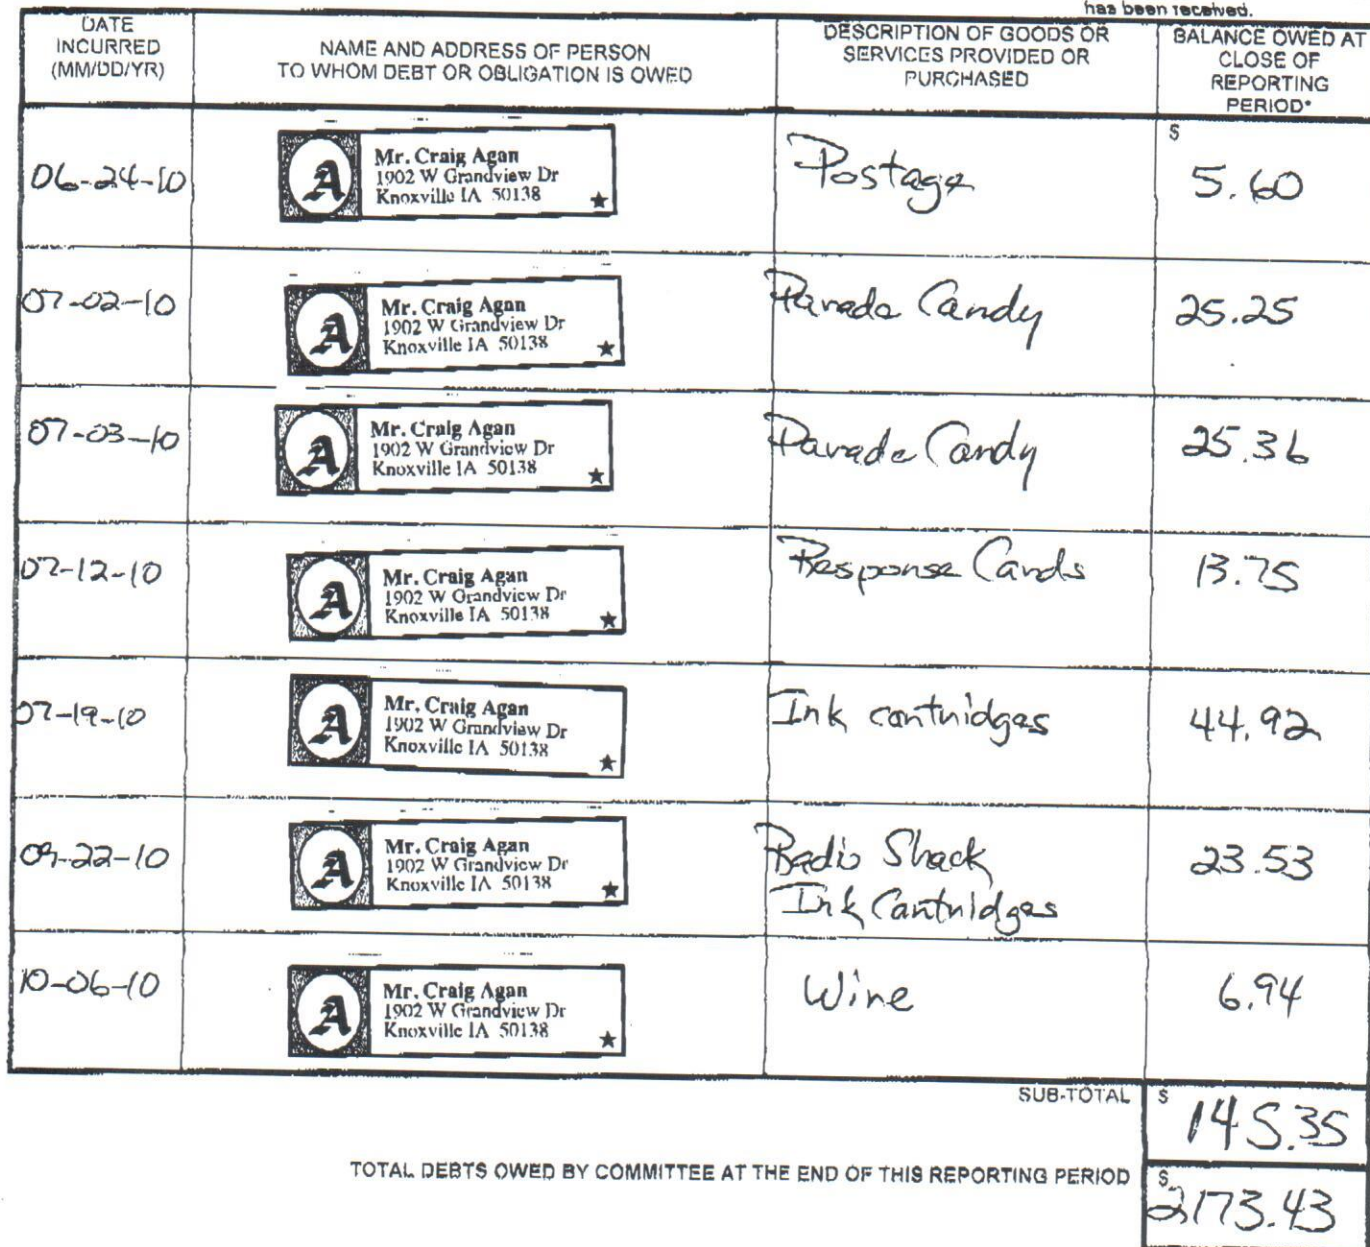 has been received.
DATE
INCURRED
(MM/DD/YR)
NAME AND ADDRESS OF PERSON
TO WHOM DEBT OR OBLIGATION IS OWED
DESCRIPTION OF GOODS OR
SERVICES PROVIDED OR
PURCHASED
BALANCE OWED AT
CLOSE OF
REPORTING
PERIOD*
06-24-10
A
Mr. Craig Agan
1902 W Grandview Dr
Knoxville IA 50138
Postage
$ 5.60
07-02-10
A
Mr. Craig Agan
1902 W Grandview Dr
Knoxville IA 50138
Parade Candy
25.25
07-03-10
A
Mr. Craig Agan
1902 W Grandview Dr
Knoxville IA 50138
Parade Candy
25.36
07-12-10
A
Mr. Craig Agan
1902 W Grandview Dr
Knoxville IA 50138
Response Cards
13.75
07-19-10
A
Mr. Craig Agan
1902 W Grandview Dr
Knoxville IA 50138
Ink cartridges
44.92
09-22-10
A
Mr. Craig Agan
1902 W Grandview Dr
Knoxville IA 50138
Radio Shack
Ink Cartridges
23.53
10-06-10
A
Mr. Craig Agan
1902 W Grandview Dr
Knoxville IA 50138
Wine
6.94
SUB-TOTAL
$ 145.35
TOTAL DEBTS OWED BY COMMITTEE AT THE END OF THIS REPORTING PERIOD
$ 2173.43